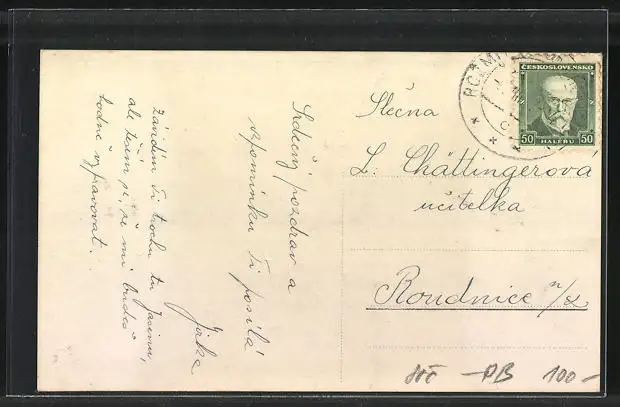 Srdečný pozdrav a
vzpomínku Ti posílá
Jirka
Závidím Ti trochu tu Jasinu,
ale těším se, že mi budeš
hodně vypravovat.
ČESKOSLOVENSKO
50 HALÉŘŮ 50
Slečna
L. Chättingerová
učitelka
Roudnice n/L
PB 100-